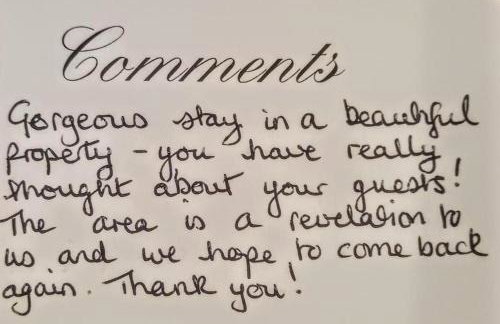 Comments
Gorgeous stay in a beautiful
property - you have really
thought about your guests!
The area is a revelation to
us and we hope to come back
again. Thank you!